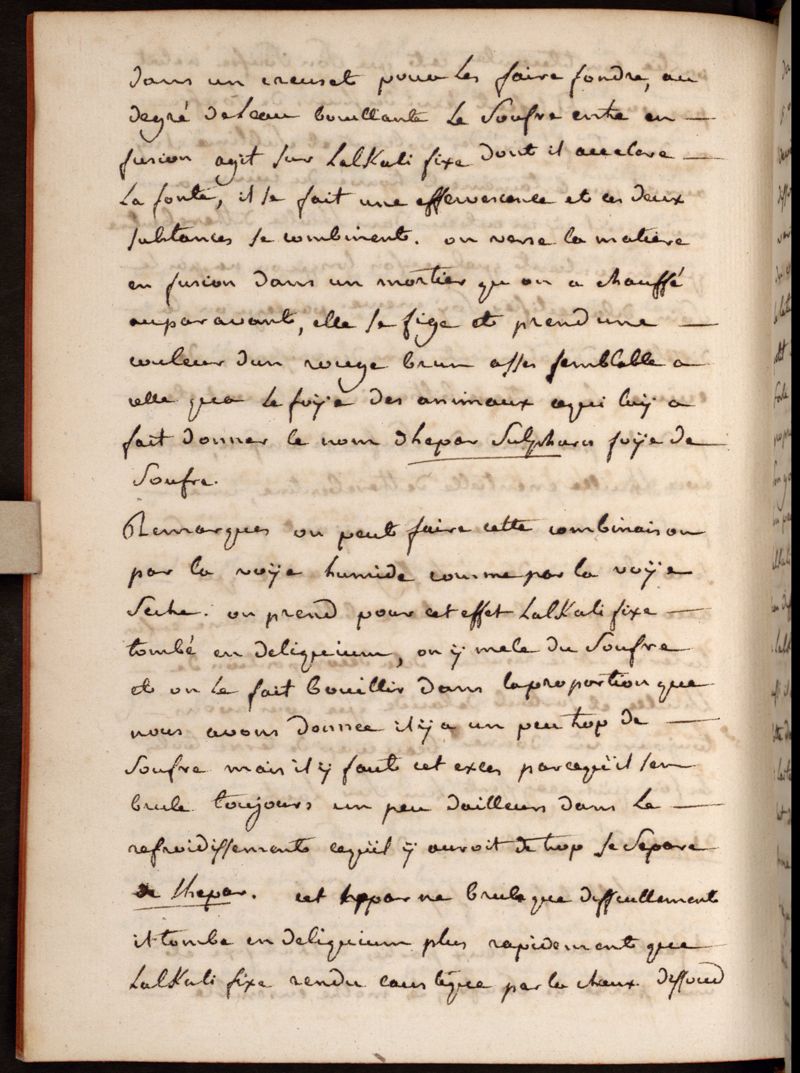 dans un creuset pour les faire fondre, au
degré de leau bouillante le Soufre entre en —
fusion agit sur LalKali fixe dont il accelere —
La fonte, il se fait une effervescence et ces deux
substances se combinent. on verse la matiere
en fusion dans un mortier qu on a chauffé
auparavant, elle se fige et prend une —
couleur dun rouge brun asses semblable a
celle qua le foÿe des animaux cequi luÿ a
fait donner le nom dhepar Sulphuris foÿe de
Soufre.
Remarques on peut faire cette combinaison
par la voÿe humide comme par la voÿe
Seche. on prend pour cet effet LalKali fixe —
tombé en deliquium, on ÿ mele du Soufre
et on Le fait bouillir dans la proportion que
nous avons donnee il ÿ a un peu trop de —
Soufre mais il ÿ faut cet exces parcequ'il sen
brule toujours un peu dailleurs dans le —
refroidissement cequil ÿ auroit de trop se Separe
de lhepar. cet heppar ne brule que difficullement
il tombe en deliquium plus rapidement que
LalKali fixe rendu caustique par la chaux. dissoud